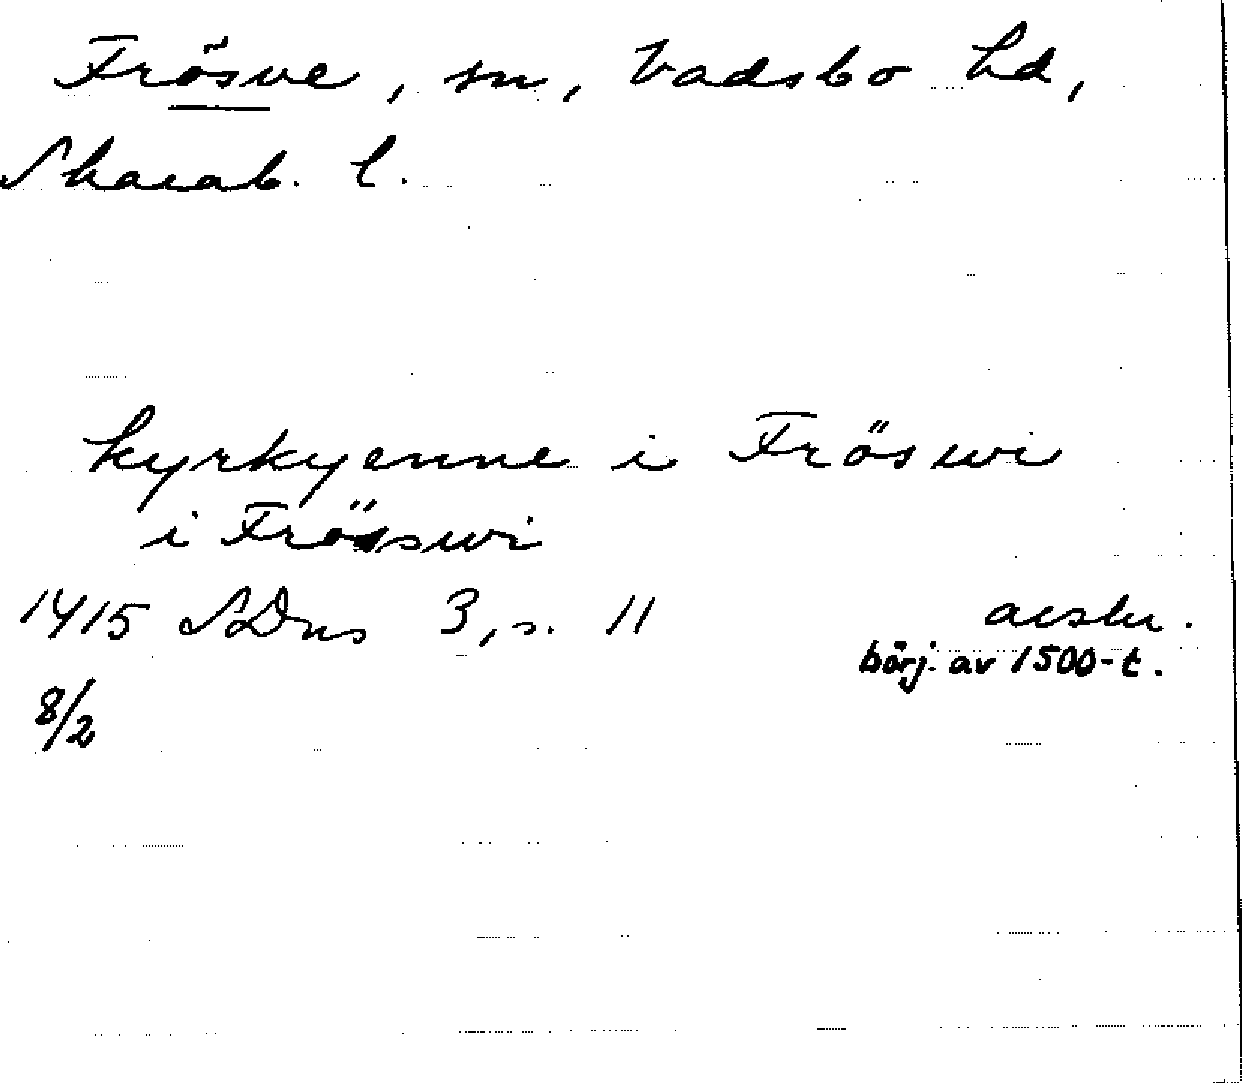 Frösve, sn, Vadsbo hd,
Skarab. l.
kyrkyenne i Fröswi
i Frösswi
1415 SDns 3, s. 11 avskr.
börj. av 1500-t.
8/2